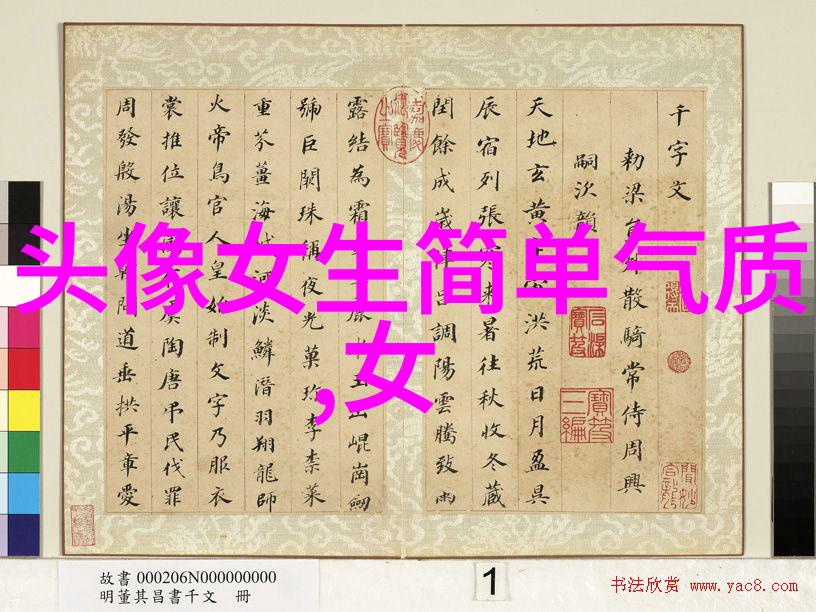 头像女生简单气质
,女
千字文
勅梁員外散騎常侍周興
嗣次韻
天地玄黃宙洪荒日月盈昃
辰宿列張寒來暑往秋收冬藏
閏餘成歲律呂調陽雲騰致雨
露結為霜麗水玉出崐崗劒
號巨闕珠稱夜光菓珍李柰菜
重芥薑海鹹河淡鱗潛羽翔龍師
火帝鳥官人皇始制文字乃服衣
裳推位讓虞陶唐弔民伐罪
周發殷湯坐朝問道垂拱平章愛
嘉慶御覽之寶
石渠寶笈
寶笈三編
故書 000206N000000000
明董其昌書千文 冊
1
书法欣赏 www.yac8.com